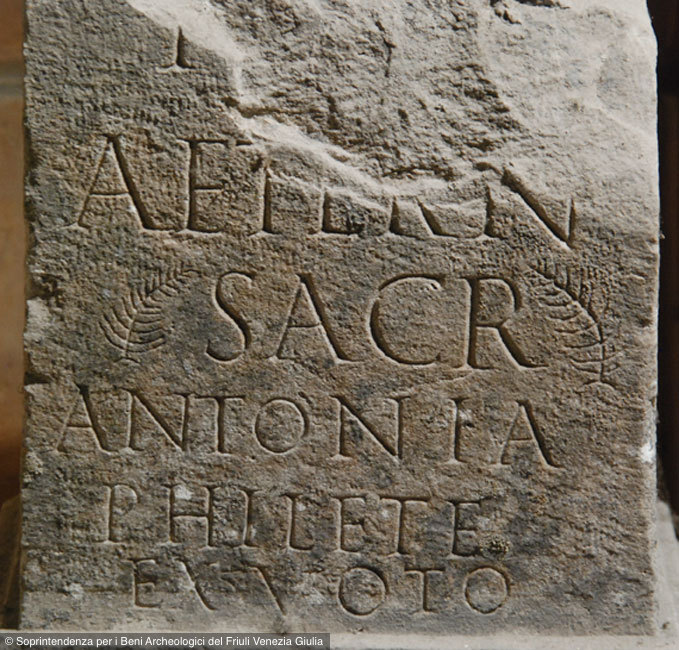 AETERN
SACR
ANTONIA
PHILETE
EX VOTO
© Soprintendenza per i Beni Archeologici del Friuli Venezia Giulia